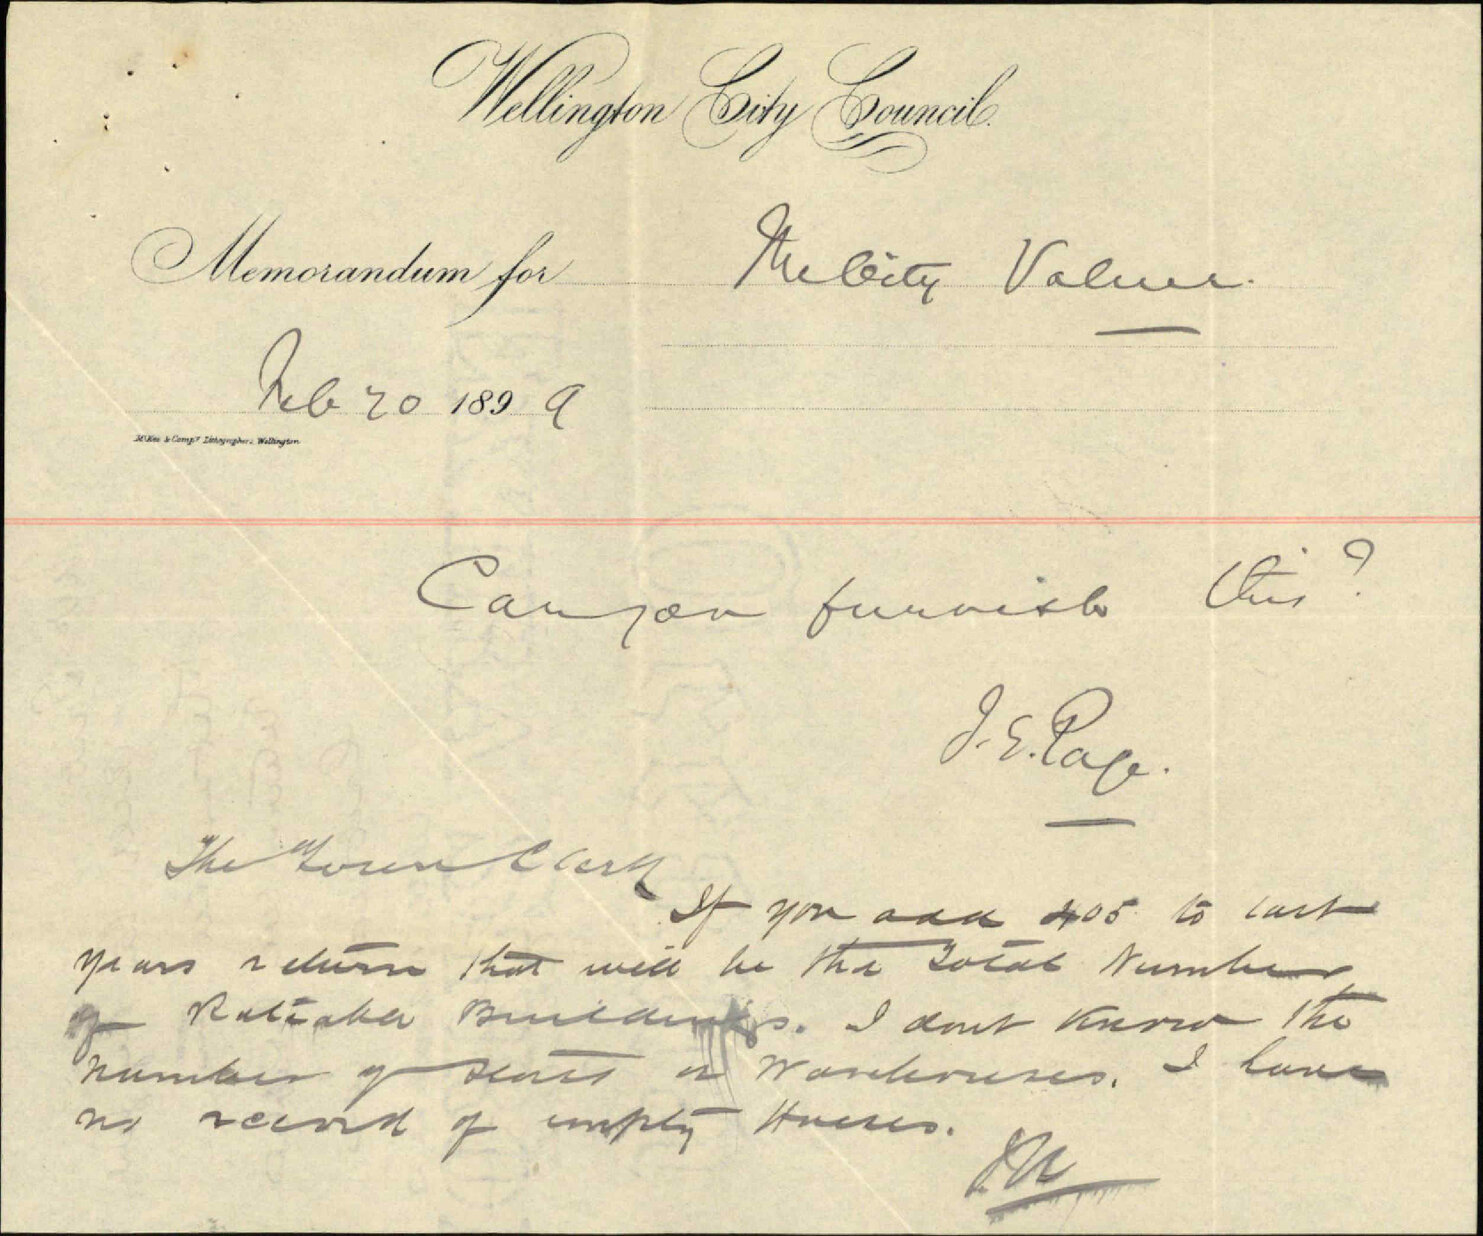 Wellington City Council.
Memorandum for The City Valuer.
Feb 20 1899
McKee & Camp? Lithographers Wellington
Can you furnish this?
J. E. Page.
The Town Clerk
If you add 405 to last
years return that will be the Total Number
of Rateable Buildings. I dont know the
number of Stores or Warehouses. I have
no record of empty Houses.